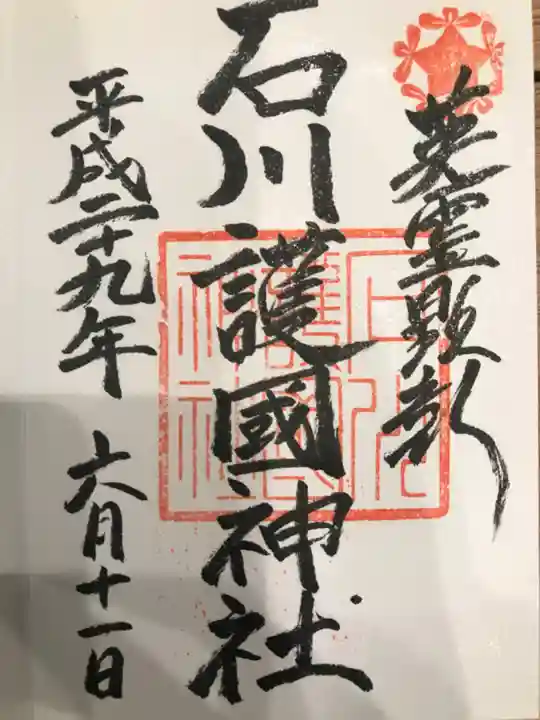 英霊顕彰
石川護國神社
平成二十九年 六月十一日